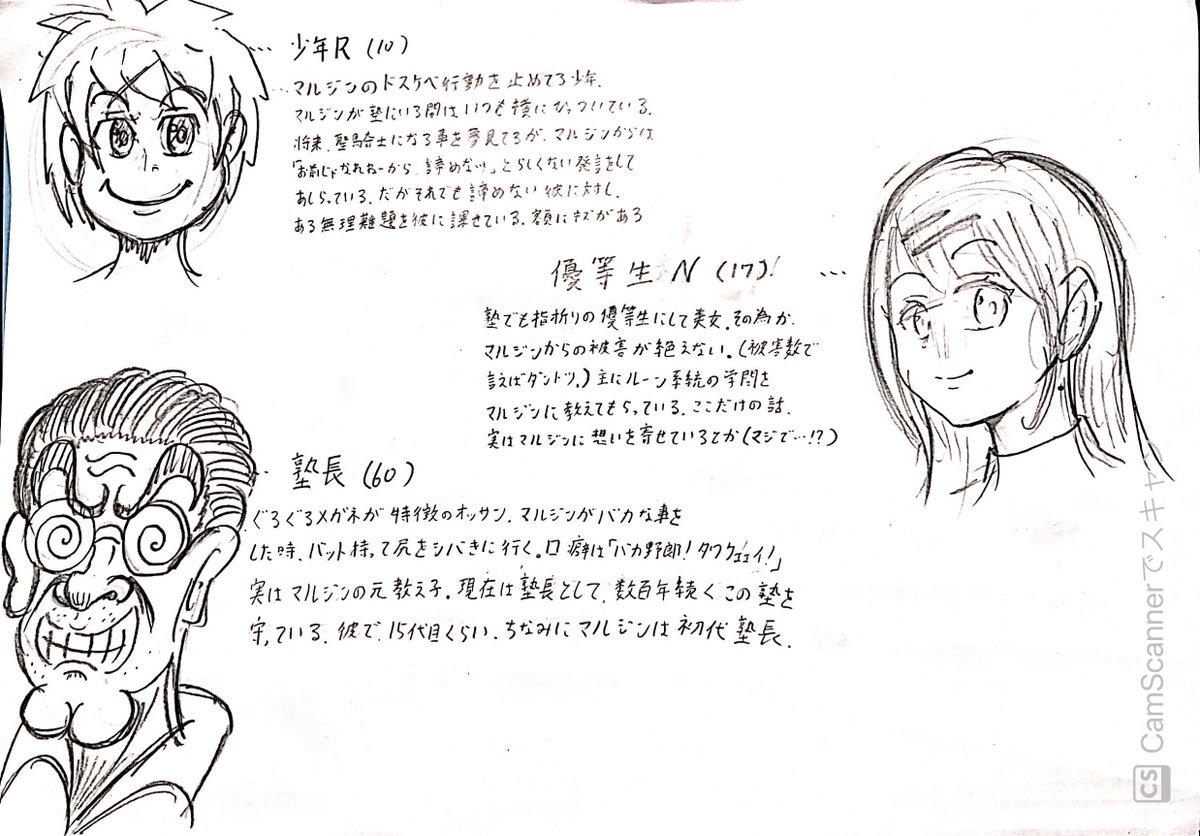 少年R (10)
マルジンのドスケベ行動を止めてる少年.
マルジンが塾にいる間はいつも横にくっついている.
将来、聖騎士になる事を夢見てるが、マルジンからは
「お前じゃなれねーから、諦めなッ」とらしくない発言をして
あしらっている.だがそれでも諦めない彼に対し、
ある無理難題を彼に課せている.額にキズがある
優等生 N (17)
塾でも指折りの優等生にして美女.その為か、
マルジンからの被害が絶えない.(被害数で
言えばダントツ.)主にルーン系統の学問を
マルジンに教えてもらっている.ここだけの話、
実はマルジンに想いを寄せているとか(マジで…!?)
塾長 (60)
ぐるぐるメガネが特徴のオッサン.マルジンがバカな事を
した時、バット持って尻をシバきに行く。口癖は「バカ野郎!タワケェェイ!」
実はマルジンの元教え子。現在は塾長として、数百年続くこの塾を
守っている.彼で、15代目くらい.ちなみにマルジンは初代塾長.
CS CamScannerでスキャ